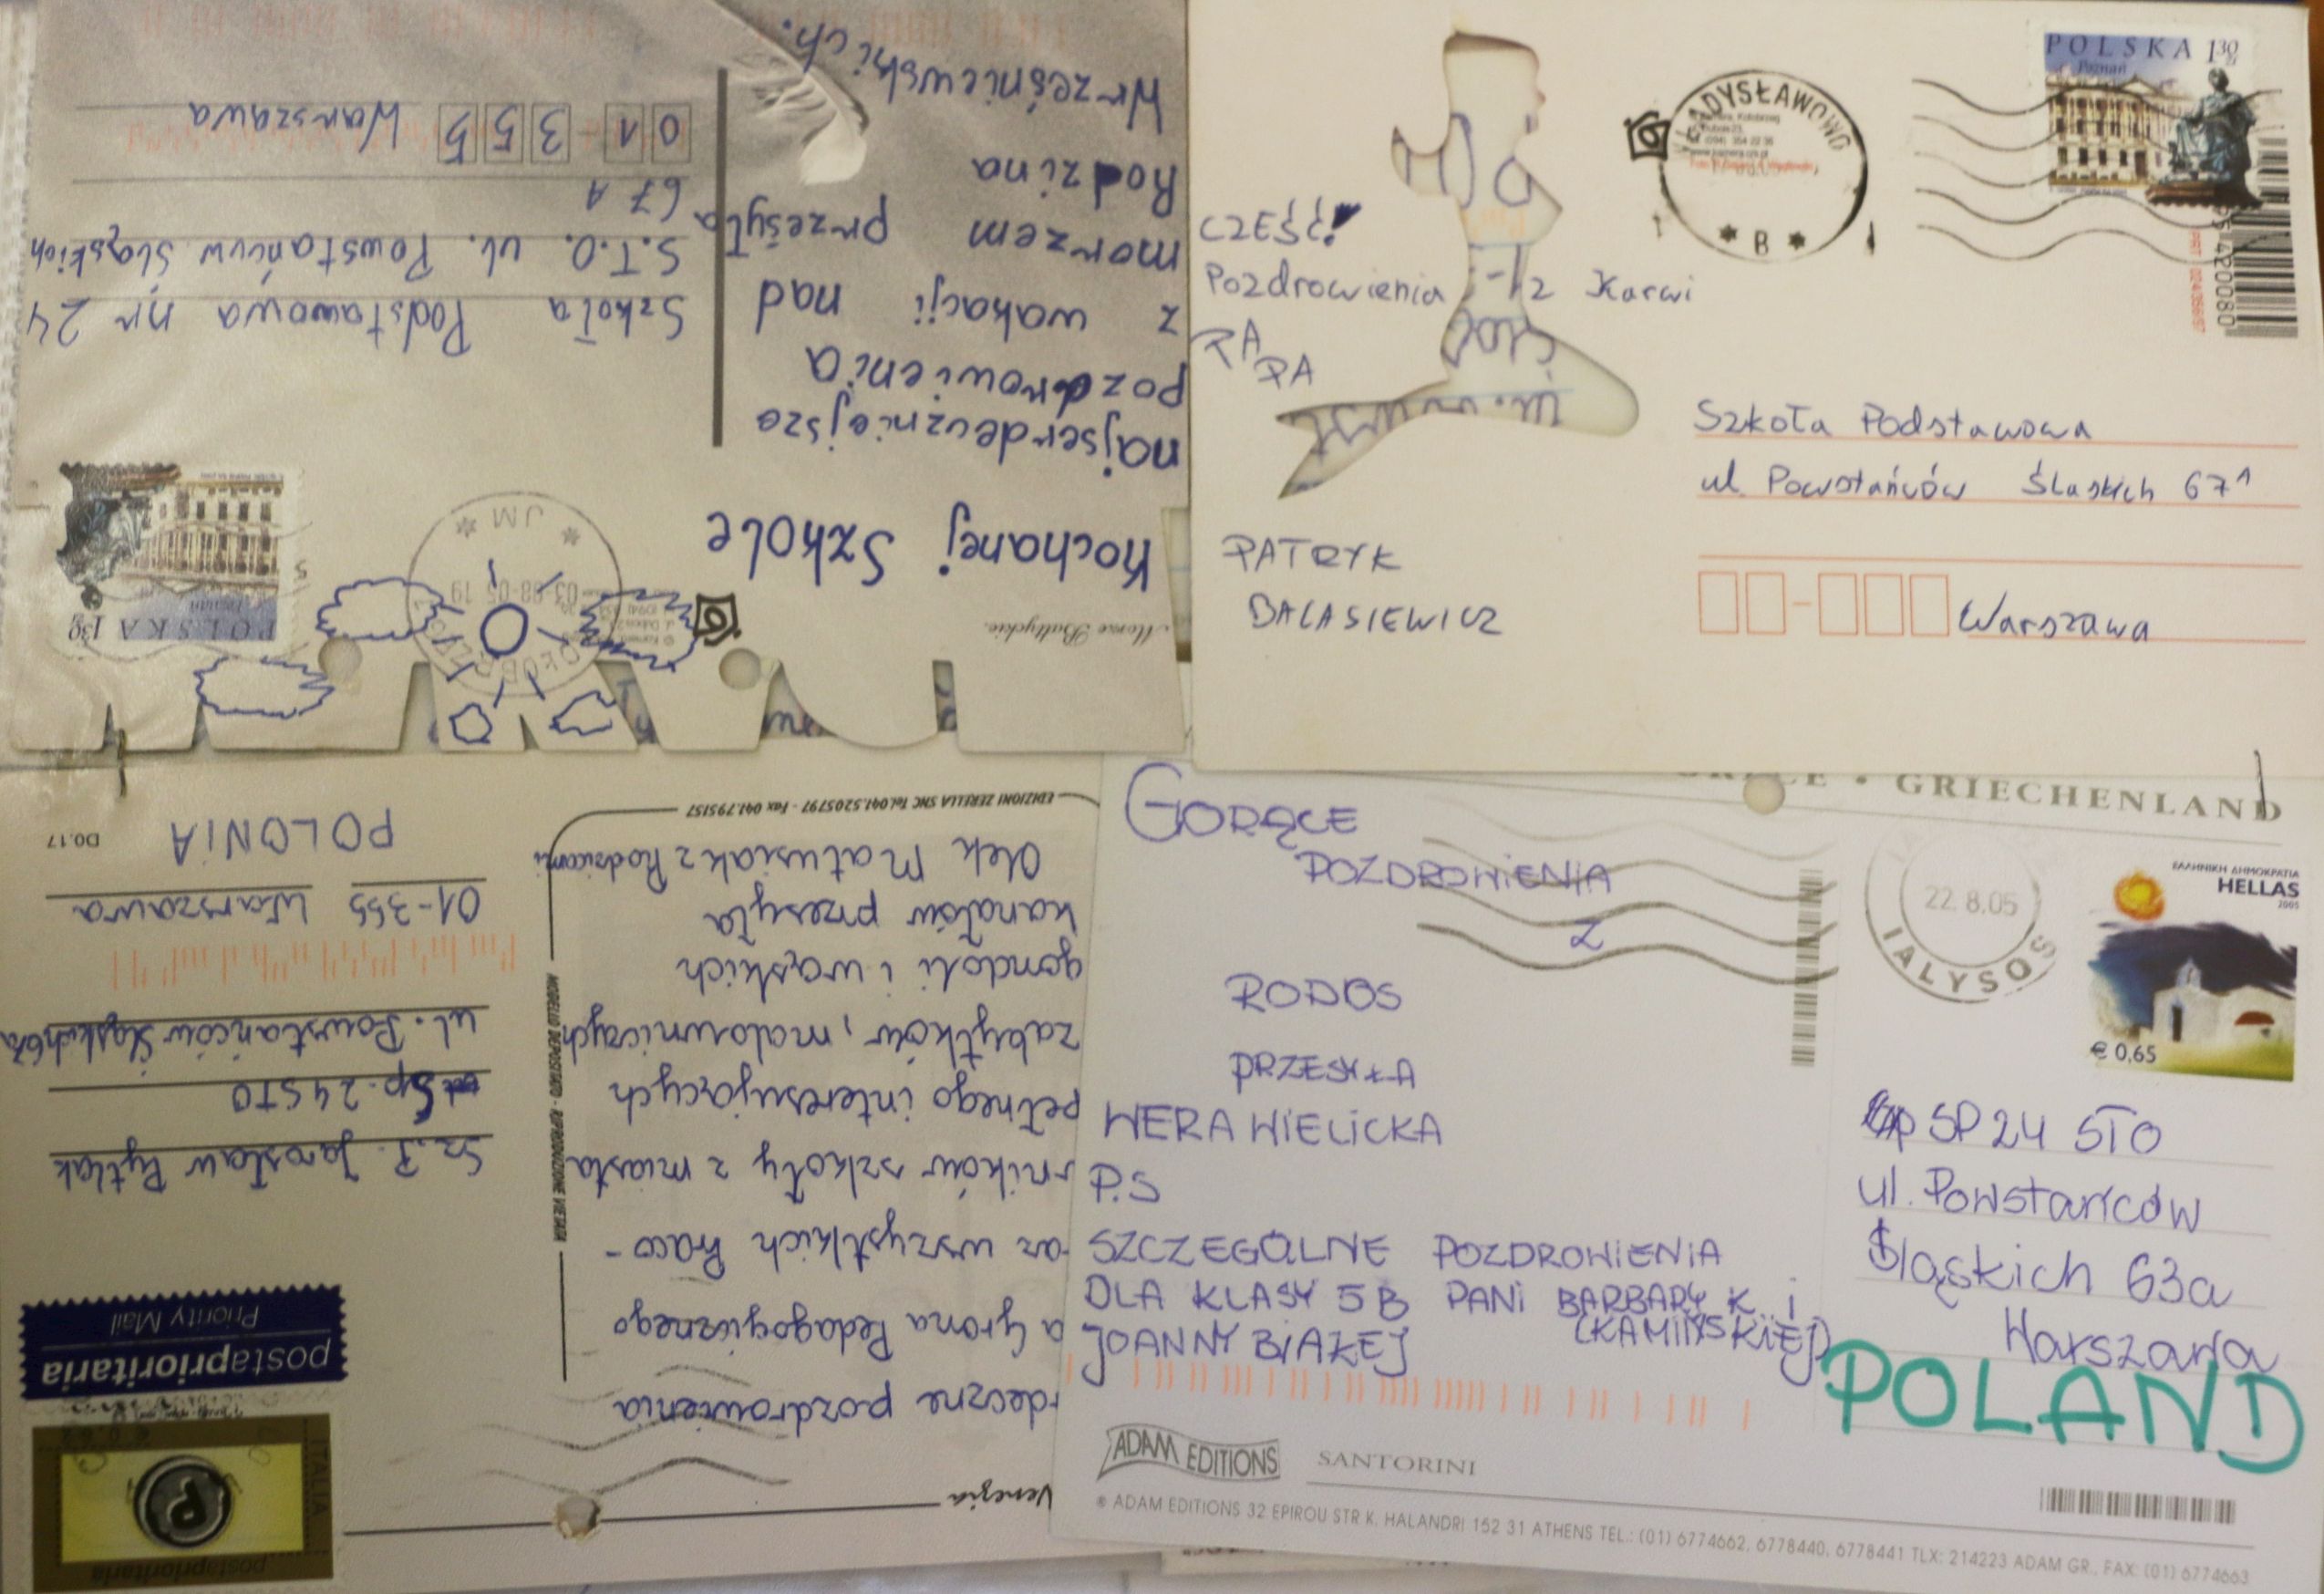 Morze Bałtyckie.
Kochanej Szkole
najserdeczniejsze
pozdrowienia
z wakacji nad
morzem przesyła
Rodzina
Wrześniewskich.
POLSKA 130 zł
Poznań
KOŁOBRZEG
03-08-05 19
* JM *
Szkoła Podstawowa nr 24
S.T.O. ul. Powstańców Śląskich
67 A
01-355 Warszawa
CZEŚĆ!
Pozdrowienia z Karwi
PA
PA
PATRYK
BALASIEWICZ
WŁADYSŁAWOWO
* B *
POLSKA 130 zł
Poznań
Szkoła Podstawowa
ul. Powstańców Śląskich 67A
Warszawa
Venezia
rdeczne pozdrowienia
a Grona Pedagogicznego
az wszystkich Praco-
wników szkoły z miasta
pełnego interesujących
zabytków, malowniczych
gondoli i wąskich
kanałów przesyła
Olek Matusiak z Rodzicami
EDIZIONI ZERELLA SNC Tel. 041.5205797 - Fax 041.795157
MODELLO DEPOSITATO - RIPRODUZIONE VIETATA
postaprioritaria
Priority Mail
ITALIA
P
postaprioritaria
Sz. P. Jarosław Pytlak
Sp. 24 STO
ul. Powstańców Śląskich 67a
01-355 Warszawa
POLONIA
D0.17
GRIECHENLAND
GORĄCE
POZDROWIENIA
Z
RODOS
PRZESYŁA
WERA WIELICKA
P.S
SZCZEGÓLNE POZDROWIENIA
DLA KLASY 5B PANI BARBARY K. i
(KAMIŃSKIEJ)
JOANNY BIAŁEJ
22.8.05
IALYSOS
ΕΛΛΗΝΙΚΗ ΔΗΜΟΚΡΑΤΙΑ
HELLAS
2005
€ 0,65
SP 24 STO
ul. Powstańców
Śląskich 63a
Warszawa
POLAND
ADAM EDITIONS SANTORINI
© ADAM EDITIONS 32 EPIROU STR K. HALANDRI 152 31 ATHENS TEL.: (01) 6774662, 6778440, 6778441 TLX: 214223 ADAM GR., FAX: (01) 6774663